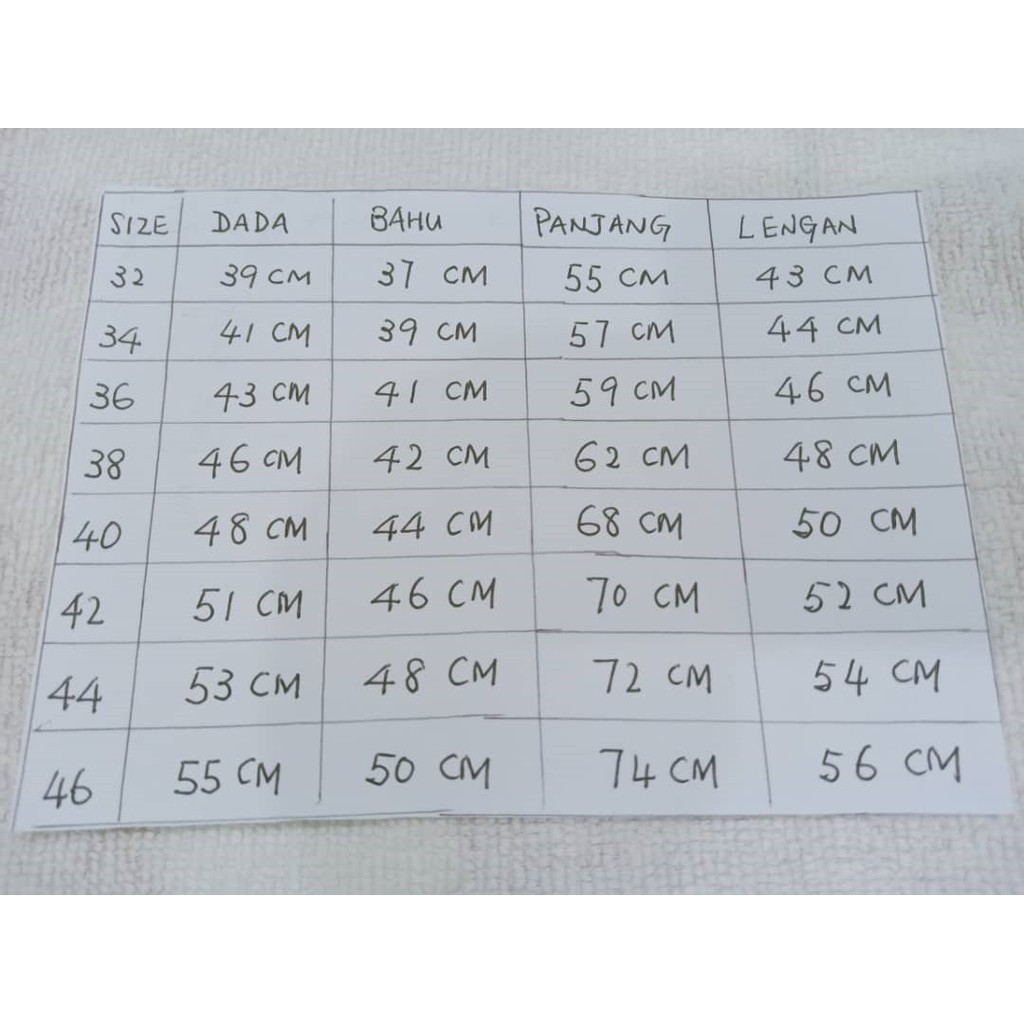 SIZE DADA BAHU PANJANG LENGAN
32 39 CM 37 CM 55 CM 43 CM
34 41 CM 39 CM 57 CM 44 CM
36 43 CM 41 CM 59 CM 46 CM
38 46 CM 42 CM 62 CM 48 CM
40 48 CM 44 CM 68 CM 50 CM
42 51 CM 46 CM 70 CM 52 CM
44 53 CM 48 CM 72 CM 54 CM
46 55 CM 50 CM 74 CM 56 CM